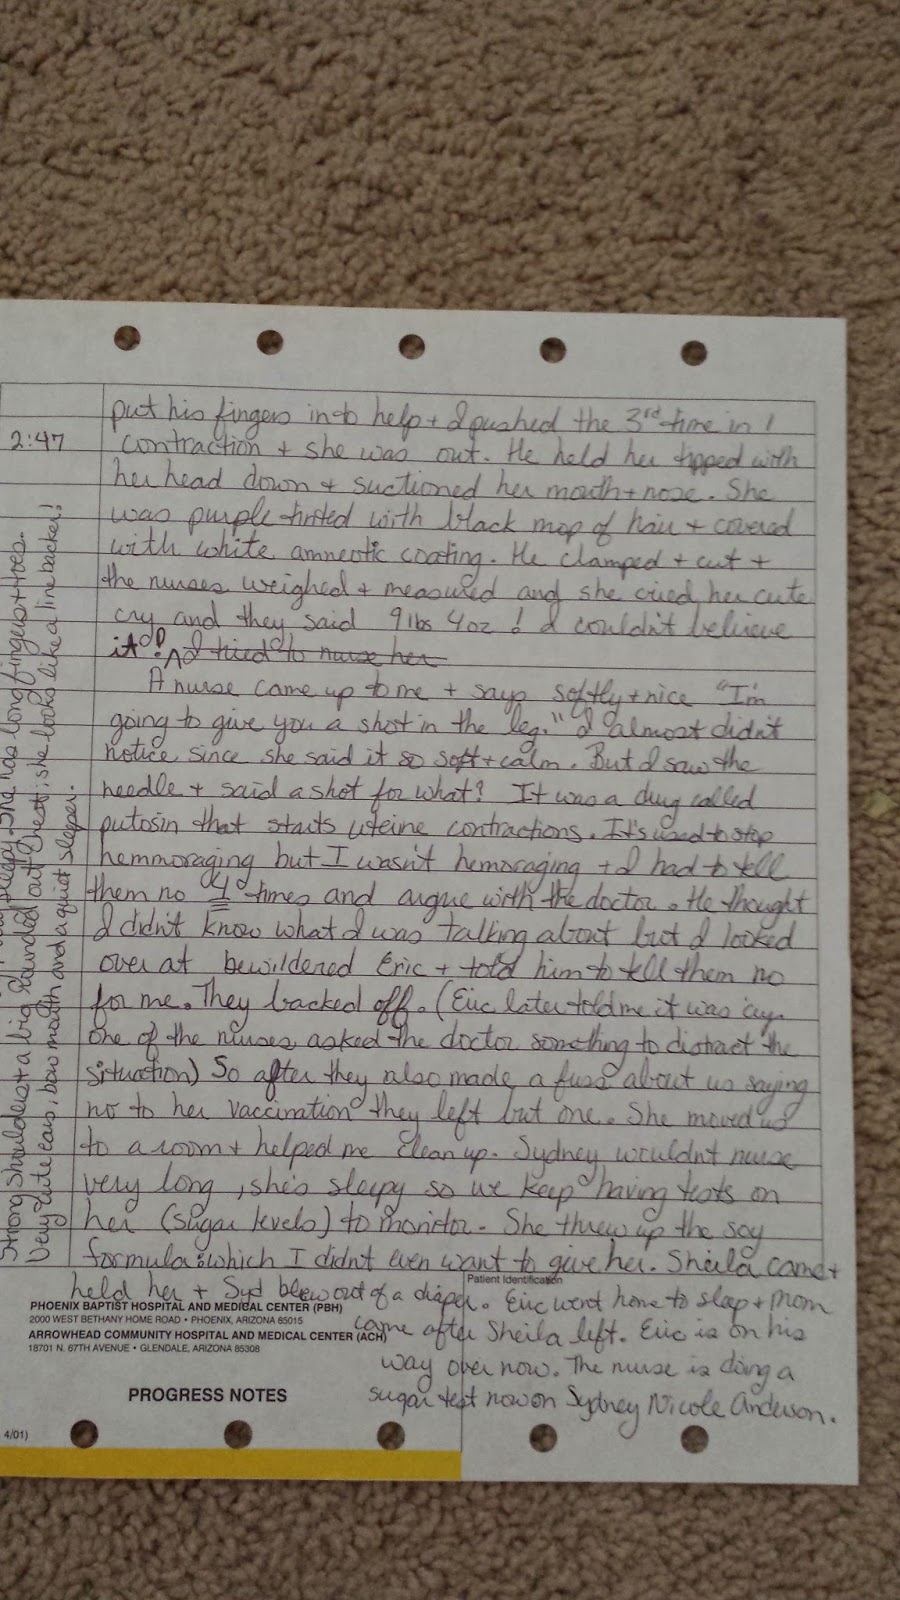 put his fingers in to help + I pushed the 3rd time in 1
2:47 contraction + she was out. He held her tipped with
her head down + suctioned her mouth + nose. She
was purple tinted with black mop of hair + covered
with white amneotic coating. He clamped + cut +
the nurses weighed + measured and she cried her cute
cry and they said 9 lbs 4oz! I couldn't believe
it! I tried to nurse her
A nurse came up to me + says softly + nice "I'm
going to give you a shot in the leg." I almost didn't
notice since she said it so soft + calm. But I saw the
needle + said a shot for what? It was a drug called
putosin that starts uteine contractions. It's used to stop
hemmoraging but I wasn't hemoraging + I had to tell
them no 4 times and argue with the doctor. He thought
I didn't know what I was talking about but I looked
over at bewildered Eric + told him to tell them no
for me. They backed off. (Eric later told me it was
one of the nurses asked the doctor something to distract the
situation) So after they also made a fuss about us saying
no to her vaccination they left but one. She moved us
to a room + helped me clean up. Sydney wouldn't nurse
very long, she's sleepy so we keep having tests on
her (sugar levels) to monitor. She threw up the soy
formula which I didn't even want to give her. Sheila came +
held her + Syd blew out of a diaper. Eric went home to sleep + Mom
came after Sheila left. Eric is on his
way over now. The nurse is doing a
sugar test now on Sydney Nicole Anderson.
sleepy. She has long fingers + toes.
Strong shoulders + a big rounded out chest; she looks like a line backer!
Very cute ears, bow mouth and a quiet sleeper.
Patient Identification
PHOENIX BAPTIST HOSPITAL AND MEDICAL CENTER (PBH)
2000 WEST BETHANY HOME ROAD • PHOENIX, ARIZONA 85015
ARROWHEAD COMMUNITY HOSPITAL AND MEDICAL CENTER (ACH)
18701 N. 67TH AVENUE • GLENDALE, ARIZONA 85308
PROGRESS NOTES
4/01)